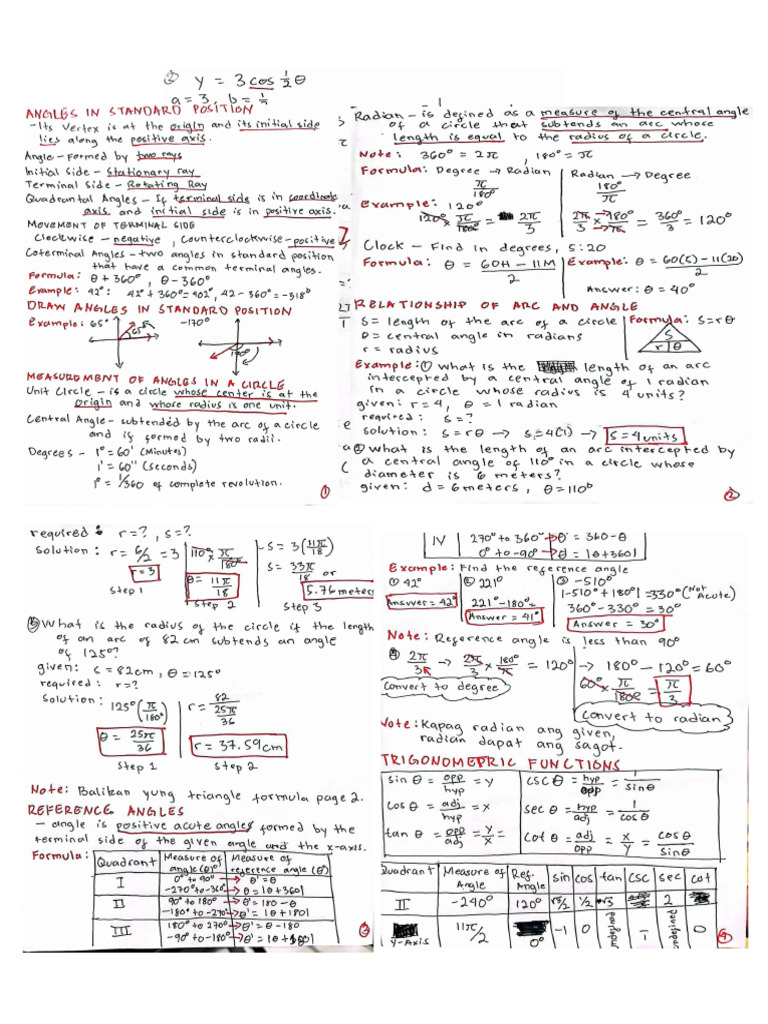 ② y = 3 cos ½ θ
a = 3, b = ½
ANGLES IN STANDARD POSITION
-Its vertex is at the origin and its initial side
lies along the positive axis.
Angle - Formed by two rays
Initial Side - Stationary ray
Terminal Side - Rotating Ray
Quadrantal Angles - If terminal side is in coordinate
axis and initial side is in positive axis.
MOVEMENT OF TERMINAL SIDE
Clockwise - negative, counterclockwise - positive
Coterminal Angles - two angles in standard position
that have a common terminal angles.
Formula: θ + 360°, θ - 360°
Example: 42°: 42° + 360° = 402°, 42 - 360° = -318°
DRAW ANGLES IN STANDARD POSITION
Example: 65° -170°
65°
170°
MEASUREMENT OF ANGLES IN A CIRCLE
Unit Circle - is a circle whose center is at the
origin and whose radius is one unit.
Central Angle - subtended by the arc of a circle
and is formed by two radii.
Degrees - 1° = 60' (Minutes)
1' = 60'' (Seconds)
1° = 1/360 of complete revolution.
①
Radian - is defined as a measure of the central angle
of a circle that subtends an arc whose
length is equal to the radius of a circle.
Note: 360° = 2π, 180° = π
Formula: Degree → Radian π/180° Radian → Degree 180°/π
Example: 120°
120° × π/180° = 2π/3 2π/3 × 180°/π = 360°/3 = 120°
Clock - Find in degrees, 5:20
Formula: θ = 60H - 11M / 2 Example: θ = 60(5) - 11(20) / 2
Answer: θ = 40°
RELATIONSHIP OF ARC AND ANGLE
s = length of the arc of a circle Formula: s = rθ
θ = central angle in radians
r = radius
s
r θ
Example: ① what is the length of an arc
intercepted by a central angle of 1 radian
in a circle whose radius is 4 units?
given: r = 4, θ = 1 radian
required: s = ?
solution: s = rθ → s = 4(1) → s = 4 units
② what is the length of an arc intercepted by
a central angle of 110° in a circle whose
diameter is 6 meters?
given: d = 6 meters, θ = 110°
②
required: r = ?, s = ?
solution: r = 6/2 = 3 110° × π/180° s = 3(11π/18)
r = 3 θ = 11π/18 s = 33π/18 or
5.76 meters
Step 1 Step 2 Step 3
③ What is the radius of the circle if the length
of an arc of 82 cm subtends an angle
of 125°?
given: s = 82 cm, θ = 125°
required: r = ?
solution: 125° (π/180°) r = 82 / 25π/36
θ = 25π/36 r = 37.59 cm
Step 1 Step 2
Note: Balikan yung triangle formula page 2.
REFERENCE ANGLES
- angle is positive acute angles formed by the
terminal side of the given angle and the x-axis.
Formula:
Quadrant Measure of angle (θ)° Measure of reference angle (θ')
I 0° to 90° → θ' = θ
-270° to -360° → θ' = |θ + 360|
II 90° to 180° → θ' = 180 - θ
-180° to -270° → θ' = |θ + 180|
III 180° to 270° → θ' = θ - 180
-90° to -180° → θ' = |θ + 180|
③
IV 270° to 360° → θ' = 360 - θ
0° to -90° → θ' = |θ + 360|
Example: Find the reference angle
① 42° ② 221° ③ -510°
Answer = 42° 221° - 180° = |-510° + 180| = 330° (Not Acute)
Answer = 41° 360° - 330° = 30°
Answer = 30°
Note: Reference angle is less than 90°
④ 2π/3 → 2π/3 × 180°/π = 120° → 180° - 120° = 60°
Convert to degree 60° × π/180° = π/3
Convert to radian
Note: Kapag radian ang given,
radian dapat ang sagot.
TRIGONOMEPRIC FUNCTIONS
sin θ = opp/hyp = y csc θ = hyp/opp = 1/sin θ
cos θ = adj/hyp = x sec θ = hyp/adj = 1/cos θ
tan θ = opp/adj = y/x = cot θ = adj/opp = x/y = cos θ/sin θ
Quadrant Measure of Angle Ref. Angle sin cos tan csc sec cot
II -240° 120° √3/2 1/2 √3 2
y-Axis 11π/2 0° -1 0 undefined -1 undefined 0
④